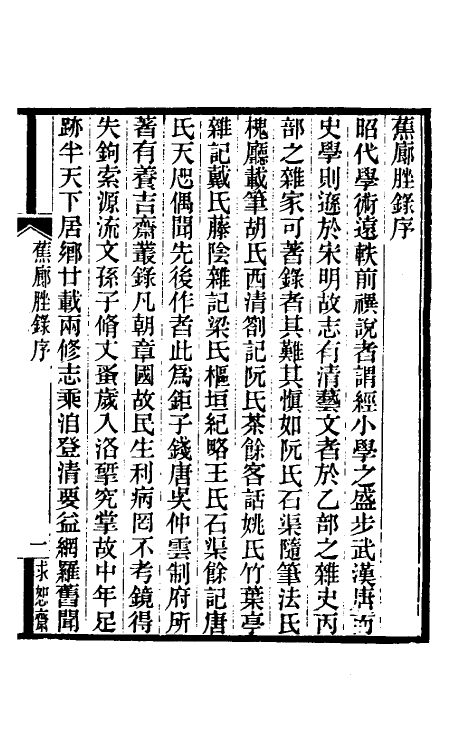 蕉廊脞錄序
昭代學術遠軼前禩說者謂經小學之盛步武漢唐而
史學則遜於宋明故志有清藝文者於乙部之雜史丙
部之雜家可著錄者其難其愼如阮氏石渠隨筆法氏
槐廳載筆胡氏西清劄記阮氏茶餘客話姚氏竹葉亭
雜記戴氏藤陰雜記梁氏樞垣紀略王氏石渠餘記唐
氏天咫偶聞先後作者此爲鉅子錢唐吳仲雲制府所
著有養吉齋叢錄凡朝章國故民生利病罔不考鏡得
失鉤索源流文孫子脩丈蚤歲入洛揅究掌故中年足
跡半天下居鄉廿載兩修志乘洎登清要益網羅舊聞
蕉廊脞錄序
一
求恕齋